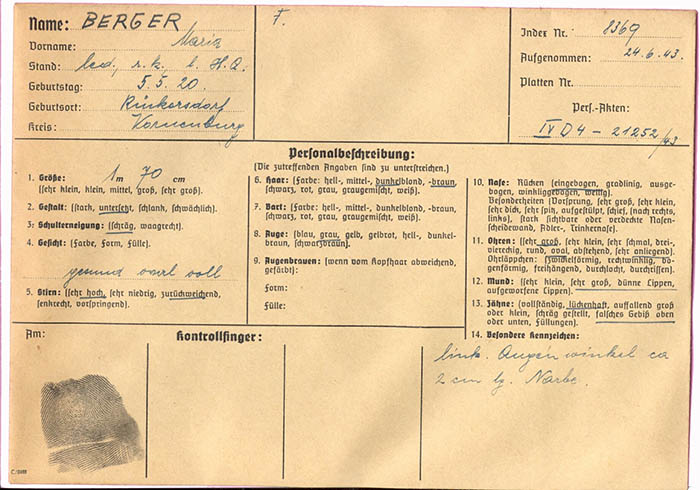 Name: BERGER
Vorname: Maria
Stand: led, r. k, l. H. Q.
Geburtstag: 5. 5. 20.
Geburtsort: Rückersdorf
Kreis: Korneuburg
F.
Index Nr. 8369
Aufgenommen: 24.6.43.
Platten Nr.
Pers.-Akten:
IV D 4 - 21252/43
Personalbeschreibung:
(Die zutreffenden Angaben sind zu unterstreichen.)
1. Größe: 1 m 70 cm
(sehr klein, klein, mittel, groß, sehr groß).
2. Gestalt: (stark, untersetzt, schlank, schwächlich).
3. Schulterneigung: (schräg, waagrecht).
4. Gesicht: (Farbe, Form, Fülle).
gesund oval voll
5. Stirn: (sehr hoch, sehr niedrig, zurückweichend,
senkrecht, vorspringend).
6. Haar: (Farbe: hell-, mittel-, dunkelblond, -braun,
schwarz, rot, grau, graugemischt, weiß).
7. Bart: (Farbe: hell-, mittel-, dunkelblond, -braun,
schwarz, rot, grau, graugemischt, weiß).
8. Auge: (blau, grau, gelb, gelbrot, hell-, dunkel-
braun, schwarzbraun).
9. Augenbrauen: (wenn vom Kopfhaar abweichend,
gefärbt):
Form:
Fülle:
10. Nase: Rücken (eingebogen, gradlinig, ausge-
bogen, winkliggebogen, wellig).
Besonderheiten (Vorsprung, sehr groß, sehr klein,
sehr dick, sehr spitz, aufgestülpt, schief, [nach rechts,
links], stark sichtbare oder verdeckte Nasen-
scheidewand, Adler-, Trinkernase).
11. Ohren: (sehr groß, sehr klein, sehr schmal, drei-,
viereckig, rund, oval, abstehend, sehr anliegend)
Ohrläppchen: (zwickelförmig, rechtwinklig, bo-
genförmig, freihängend, durchlocht, durchrissen).
12. Mund: (sehr klein, sehr groß, dünne Lippen,
aufgeworfene Lippen).
13. Zähne: (vollständig, lückenhaft, auffallend groß
oder klein, schräg gestellt, falsches Gebiß oben
oder unten, Füllungen).
14. Besondere Kennzeichen:
link. Augenwinkel ca
2 cm lg. Narbe.
Am:
Kontrollfinger: